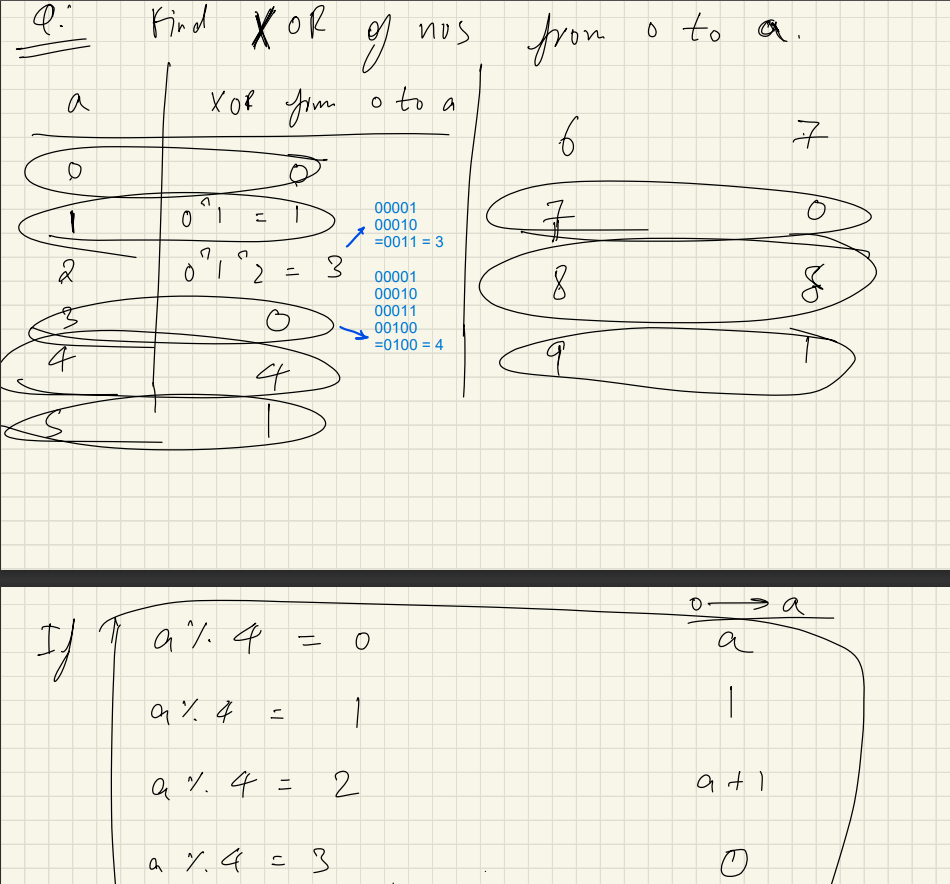 Q: Find XOR of nos from 0 to a.
a XOR from 0 to a
0 0
1 0^1 = 1
00001
00010
=0011 = 3
2 0^1^2 = 3
00001
00010
00011
00100
=0100 = 4
3 0
4 4
5 1
6 7
7 0
8 8
9 1
0 → a
If a % 4 = 0 a
a % 4 = 1 1
a % 4 = 2 a + 1
a % 4 = 3 0